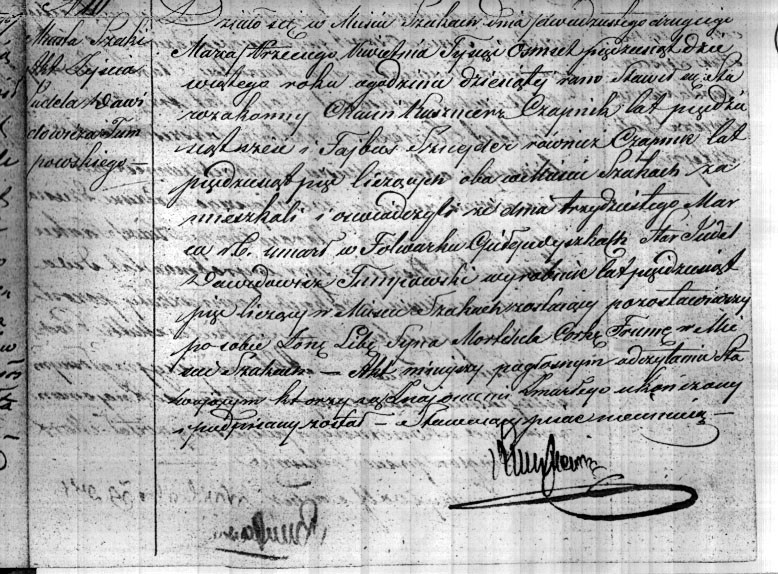 Miasta Szaki
Akt Zejścia
Judela Dawi
dowicza Tum
powskiego —
Działo się w Mieście Szakach dnia dwudziestego drugiego
Marca /trzeciego Kwietnia Tysiąc osmset pięćdziesiąt dzie
wiątego roku o godzinie dziesiąty rano Stawili się Sta
rozakonny Czapnik lat pięćdzie
siąt i Szneyder rownież Czapnik lat
pięćdziesiąt pięć liczących oba w Mieście Szakach za
mieszkali i oswiadczyli iż dnia trzydziestego Mar
ca r. b. umarł w Folwarku Star Judel
Dawidowicz wyrobnik lat pięćdziesiąt
pięć liczący w Mieście Szakach zostający pozostawiwszy
po sobie Żonę Libę Syna Mortchela Corkę Frumę w Mie
ście Szakach — Akt niniejszy po głosnym odczytaniu Sta
wającym ktorzy są Znajomemi Zmarłego ukończony
i podpisany został — Stawający pisać nieumieją —